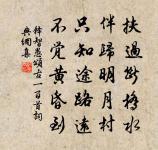 扶過斷橋水
伴歸明月村
只知途路遠
不覺黃昏到
釋智愚頌古一百首詞
典網集